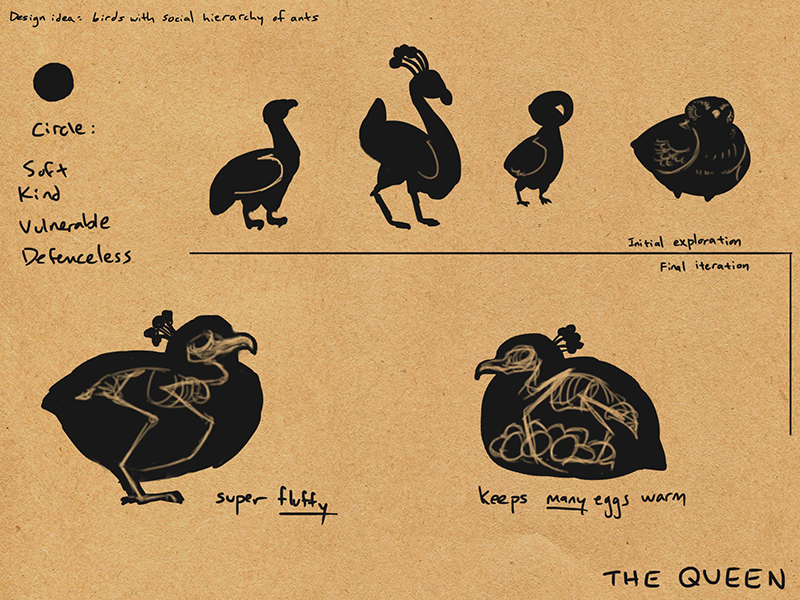 Design idea: birds with social hierarchy of ants
Circle:
Soft
Kind
Vulnerable
Defenceless
Initial exploration
Final iteration
super fluffy
Keeps many eggs warm
THE QUEEN